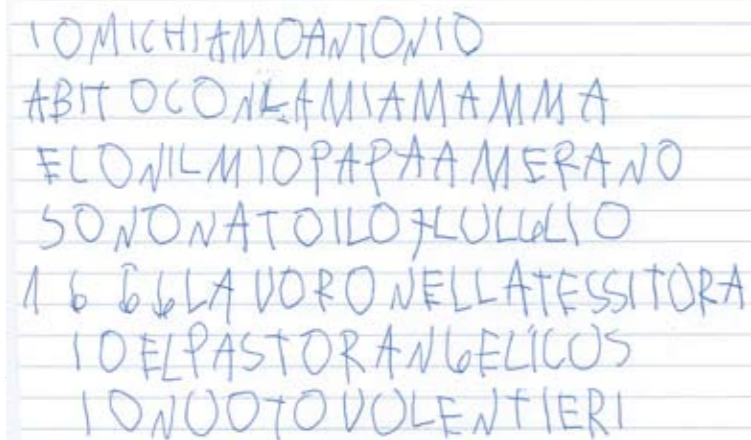 IOMICHIAMOANTONIO
ABITOCONLAMIAMAMMA
ECONILMIOPAPAAMERANO
SONONATOIL07LUGLIO
1666LAVORONELLATESSITORA
IOELPASTORANGELICOS
IONUOTOVOLENTIERI